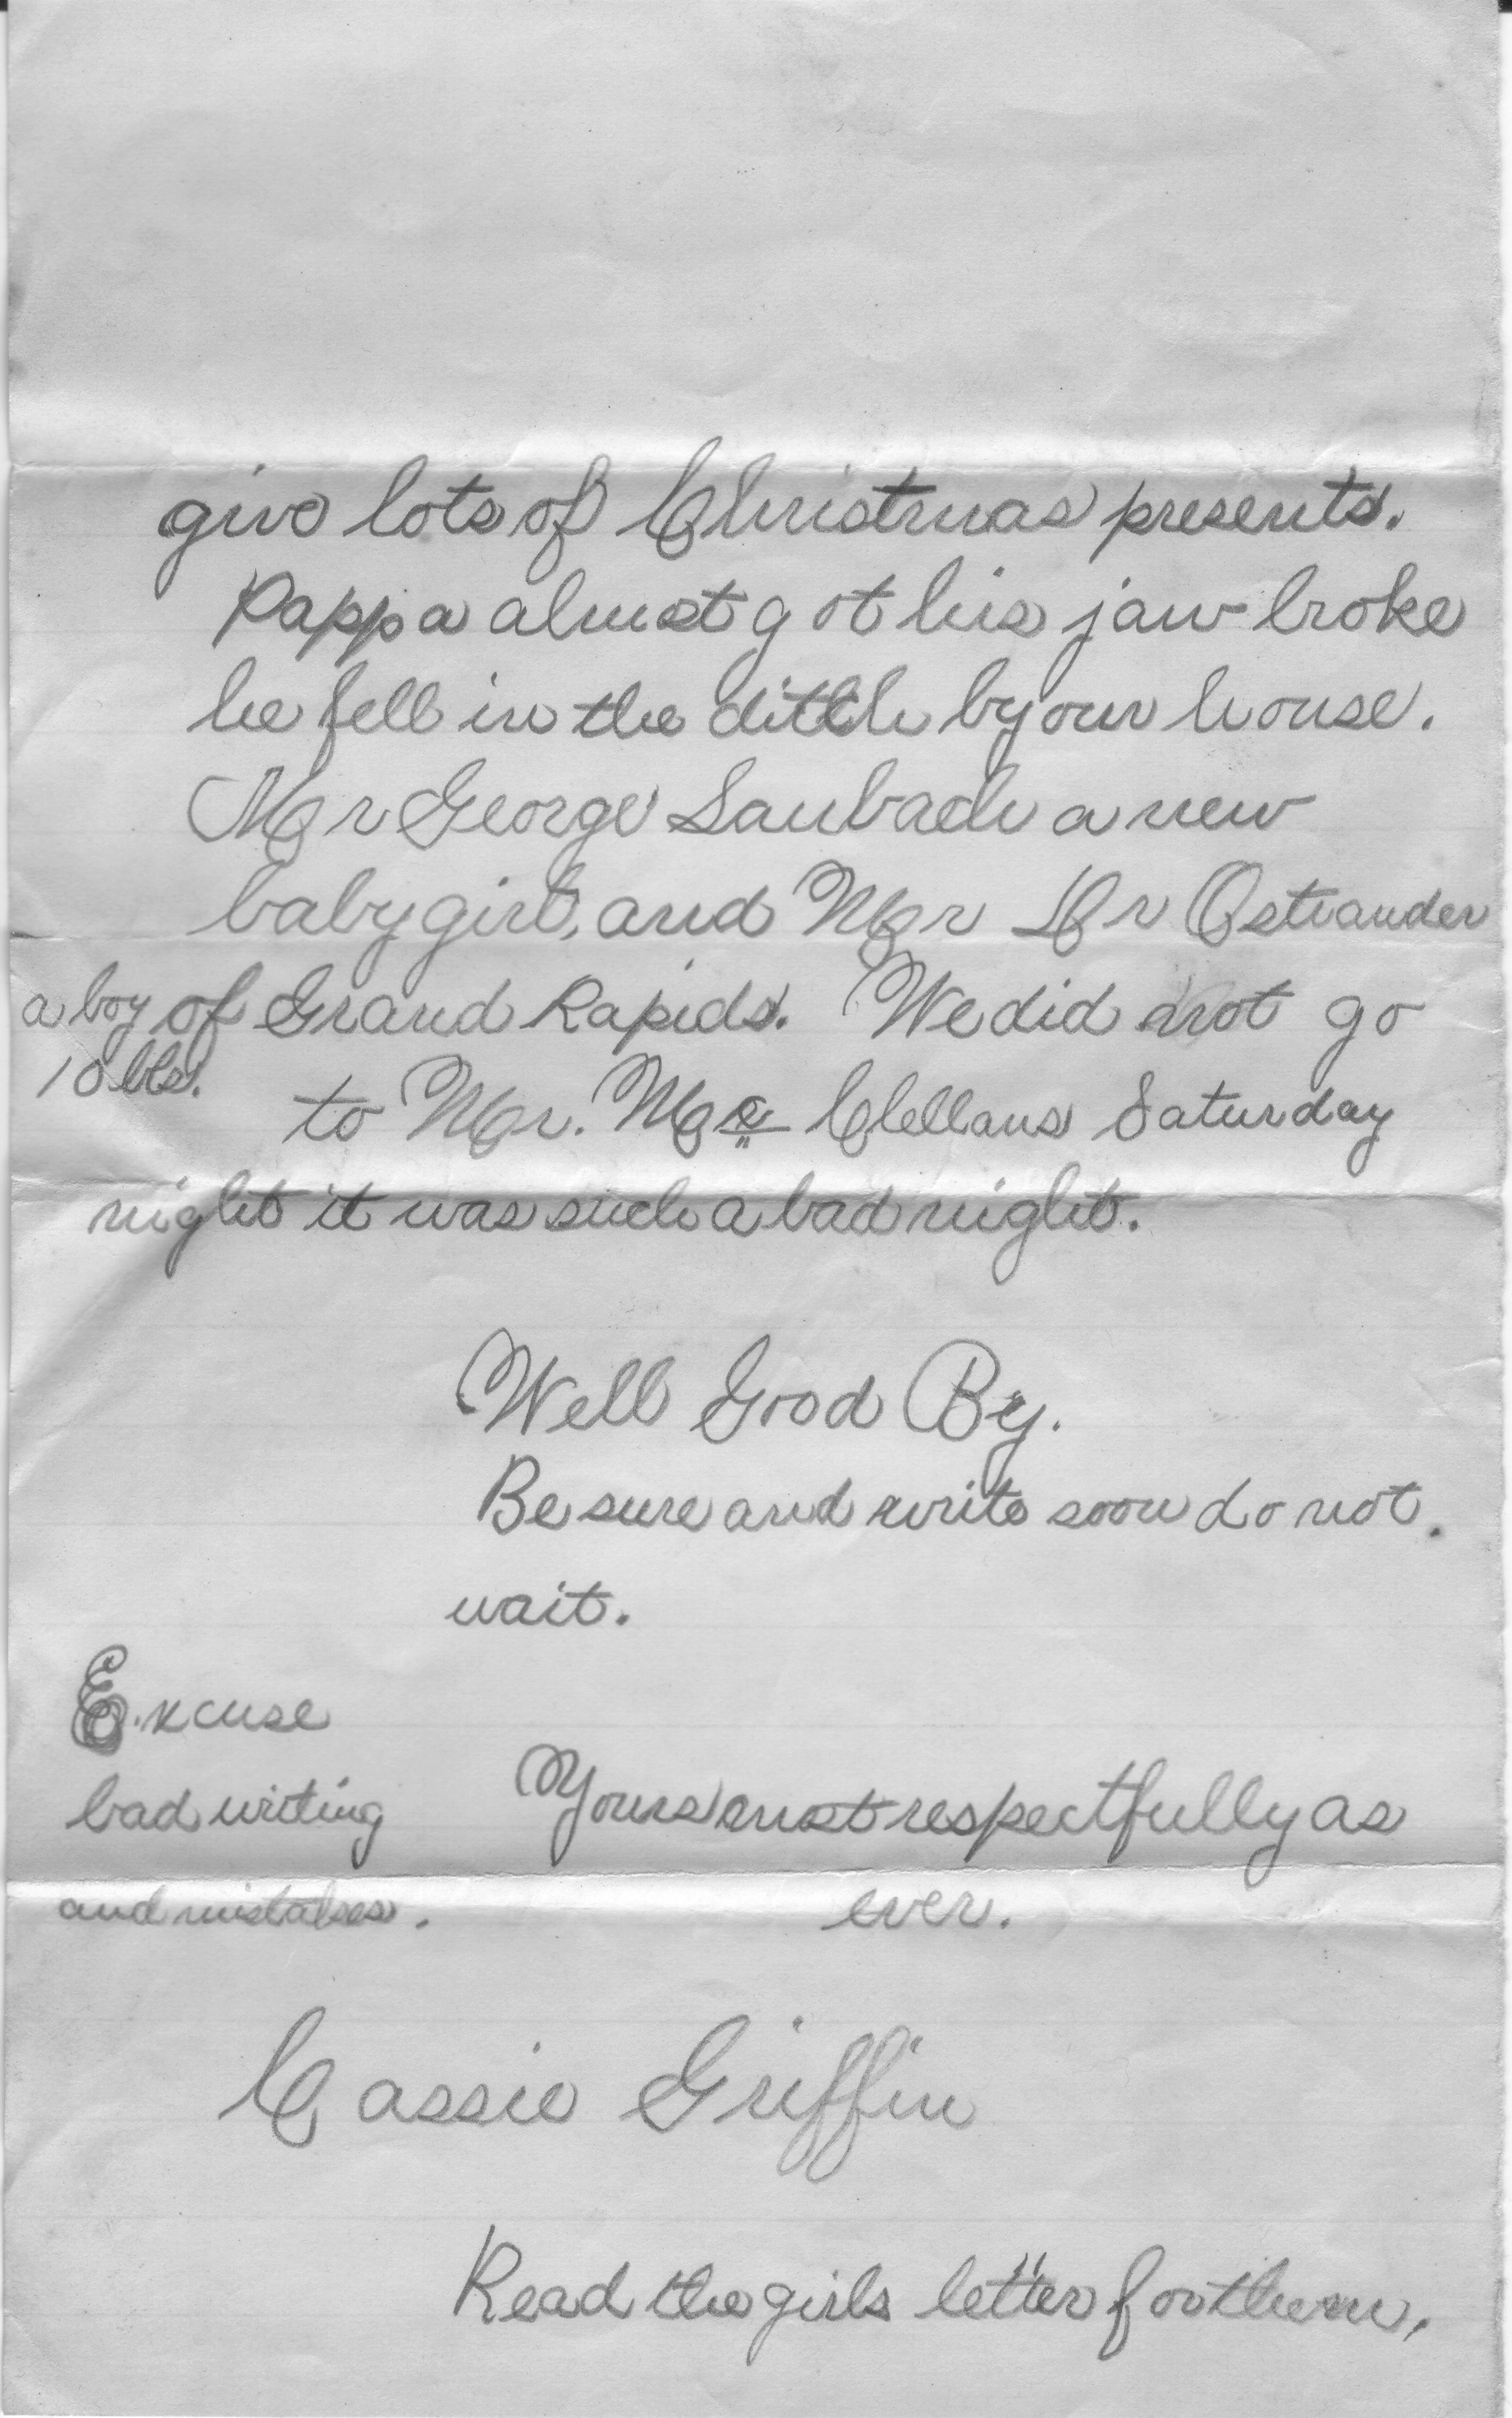 give lots of Christmas presents.
Pappa almost got his jaw broke
he fell in the ditch by our house.
Mr George Saubach a new
baby girl, and Mr Ostrander
a boy of Grand Rapids. We did not go
10 lbs.
to Mr. Mc Clellans Saturday
night it was such a bad night.
Well Good By.
Be sure and write soon do not.
wait.
Excuse
bad writing
and mistakes.
Yours most respectfully as
ever.
Cassie Griffin
Read the girls letter for them.